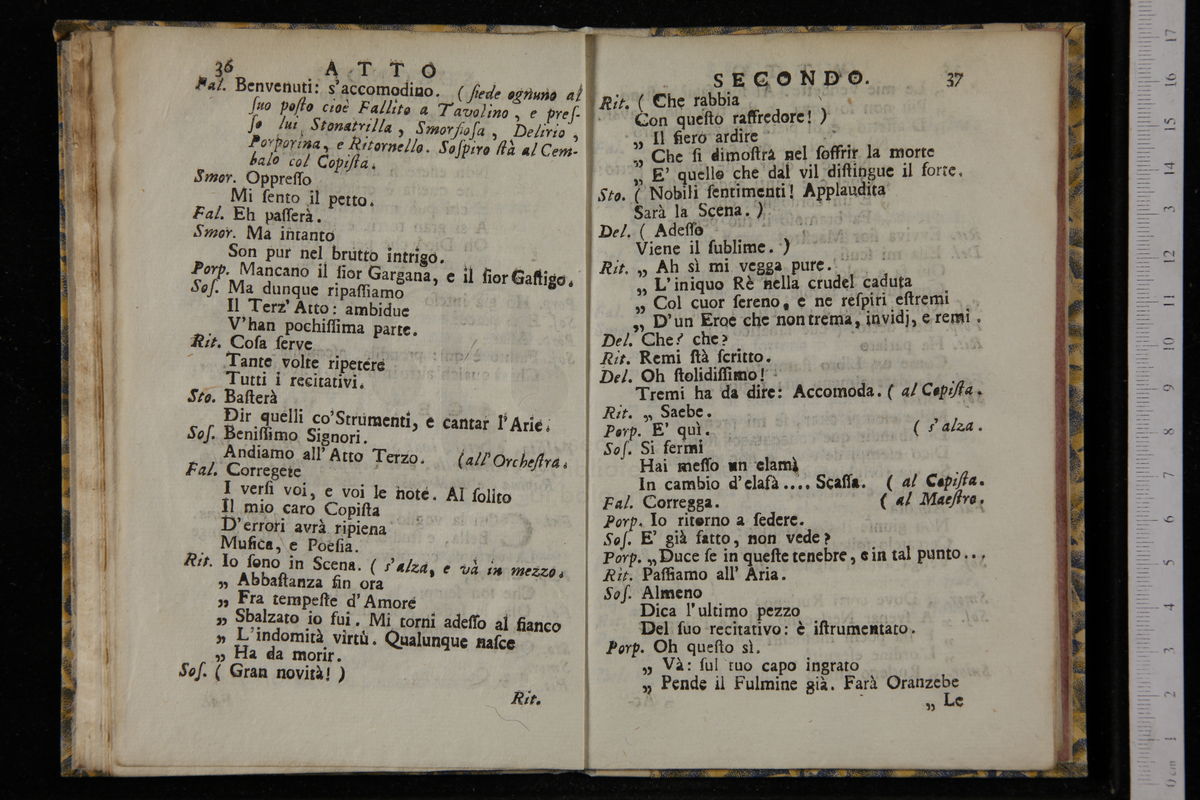 36 ATTO
Fal. Benvenuti: s'accomodino. (ſiede ognuno al
ſuo poſto cioè Fallito a Tavolino, e preſ-
ſo lui Stonatrilla, Smorfioſa, Delirio,
Porporina, e Ritornello. Soſpiro ſtà al Cem-
balo col Copiſta.
Smor. Oppreſſo
Mi ſento il petto.
Fal. Eh paſſerà.
Smor. Ma intanto
Son pur nel brutto intrigo.
Porp. Mancano il ſior Gargana, e il ſior Gaſtigo.
Soſ. Ma dunque ripaſſiamo
Il Terz' Atto: ambidue
V'han pochiſſima parte.
Rit. Coſa ſerve
Tante volte ripetere
Tutti i recitativi.
Sto. Baſterà
Dir quelli co'Strumenti, e cantar l'Arie.
Soſ. Beniſſimo Signori.
Andiamo all'Atto Terzo. (all'Orcheſtra.
Fal. Corregete
I verſi voi, e voi le note. Al ſolito
Il mio caro Copiſta
D'errori avrà ripiena
Muſica, e Poeſia.
Rit. Io ſono in Scena. (s'alza, e và in mezzo.
„ Abbaſtanza fin ora
„ Fra tempeſte d'Amore
„ Sbalzato io fui. Mi torni adeſſo al fianco
„ L'indomità virtù. Qualunque naſce
„ Ha da morir.
Soſ. (Gran novità!)
Rit.
SECONDO. 37
Rit. (Che rabbia
Con queſto raffredore!)
„ Il fiero ardire
„ Che ſi dimoſtra nel ſoffrir la morte
„ E' quello che dal vil diſtingue il forte.
Sto. (Nobili ſentimenti! Applaudita
Sarà la Scena.)
Del. (Adeſſo
Viene il ſublime.)
Rit. „ Ah sì mi vegga pure.
„ L'iniquo Rè nella crudel caduta
„ Col cuor ſereno, e ne reſpiri eſtremi
„ D'un Eroe che non trema, invidj, e remi.
Del. Che? che?
Rit. Remi ſtà ſcritto.
Del. Oh ſtolidiſſimo!
Tremi ha da dire: Accomoda. (al Copiſta.
Rit. „ Saebe.
Porp. E' quì. (s'alza.
Soſ. Si fermi
Hai meſſo un elamì
In cambio d'elafà.... Scaſſa. (al Copiſta.
Fal. Corregga. (al Maeſtro.
Porp. Io ritorno a ſedere.
Soſ. E' già fatto, non vede?
Porp. „Duce ſe in queſte tenebre, e in tal punto...
Rit. Paſſiamo all' Aria.
Soſ. Almeno
Dica l'ultimo pezzo
Del ſuo recitativo: è iſtrumentato.
Porp. Oh queſto sì.
„ Và: ſul tuo capo ingrato
„ Pende il Fulmine già. Farà Oranzebe
„ Le